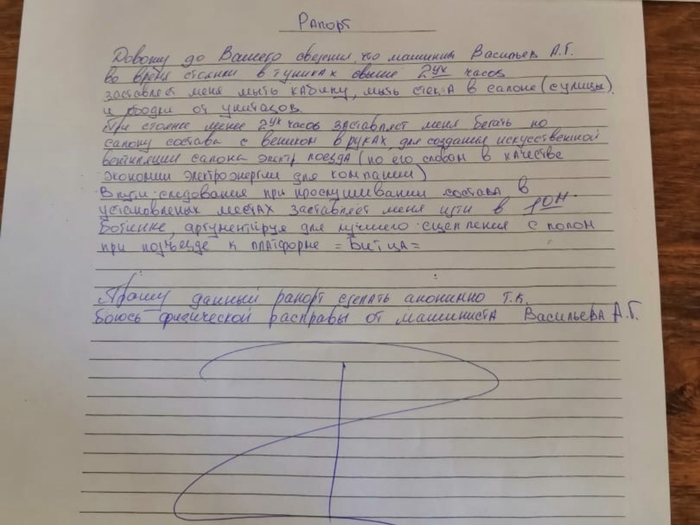 Рапорт
Довожу до Вашего сведения, что машинист Васильев А.Г.
во время стоянки в тупиках свыше 2ух часов
заставляет меня мыть кабину, мыть стекла в салоне (с улицы),
и ободки от унитазов.
При стоянке менее 2ух часов заставляет меня бегать по
салону состава с веником в руках для создания искусственной
вентиляции салона электр поезда (по его словам в качестве
экономии электроэнергии для компании)
В пути следования при прослушивании состава в
установленых местах заставляет меня идти в 1ом
ботинке, аргументируя для лучшего сцепления с полом
при подъезде к платформе =Битца=
Прошу данный рапорт сделать анонимно т.к.
боюсь физической расправы от машиниста Васильева А.Г.